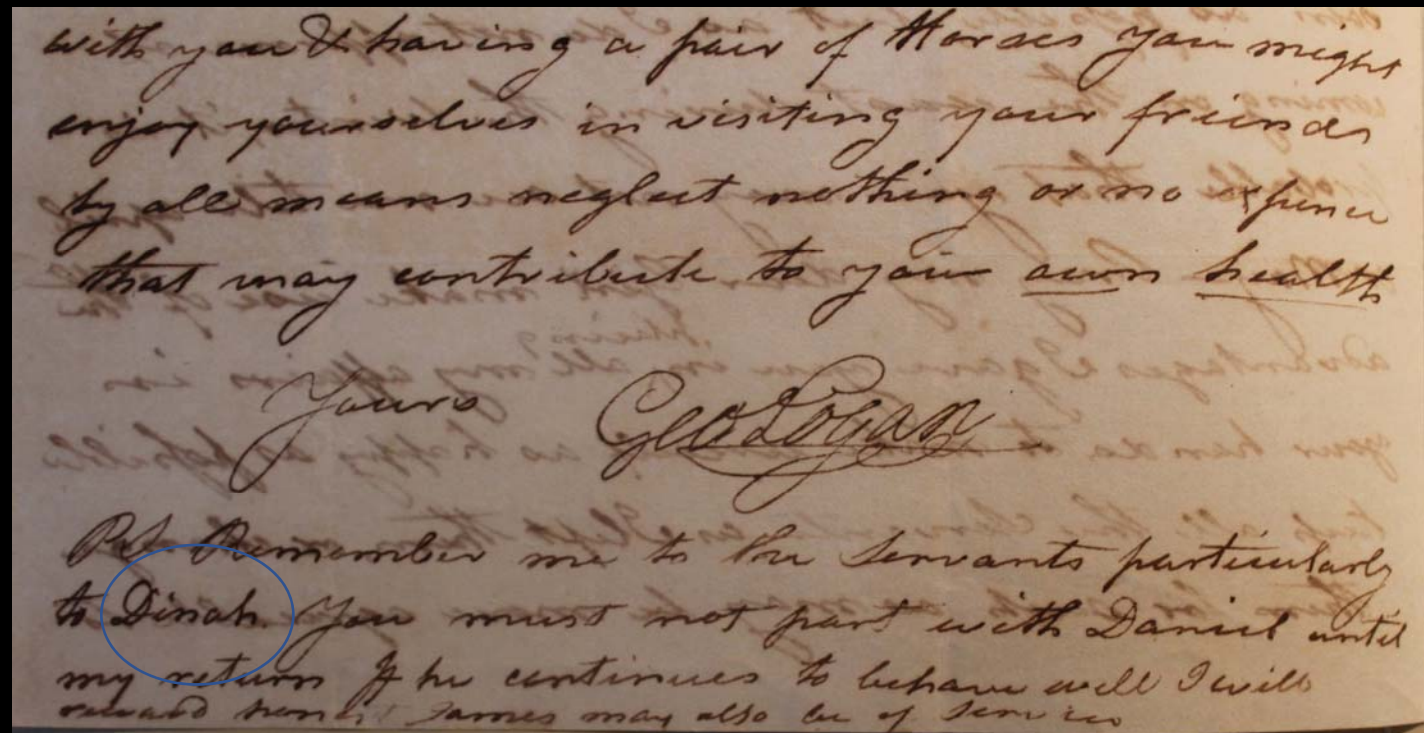 with you & having a pair of Horses you might
enjoy yourselves in visiting your friends
by all means neglect nothing or no expence
that may contribute to your own health
Yours Geo Logan
PS Remember me to the servants particularly
to Dinah. You must not part with Daniel until
my return If he continues to behave well I will
reward James may also be of service